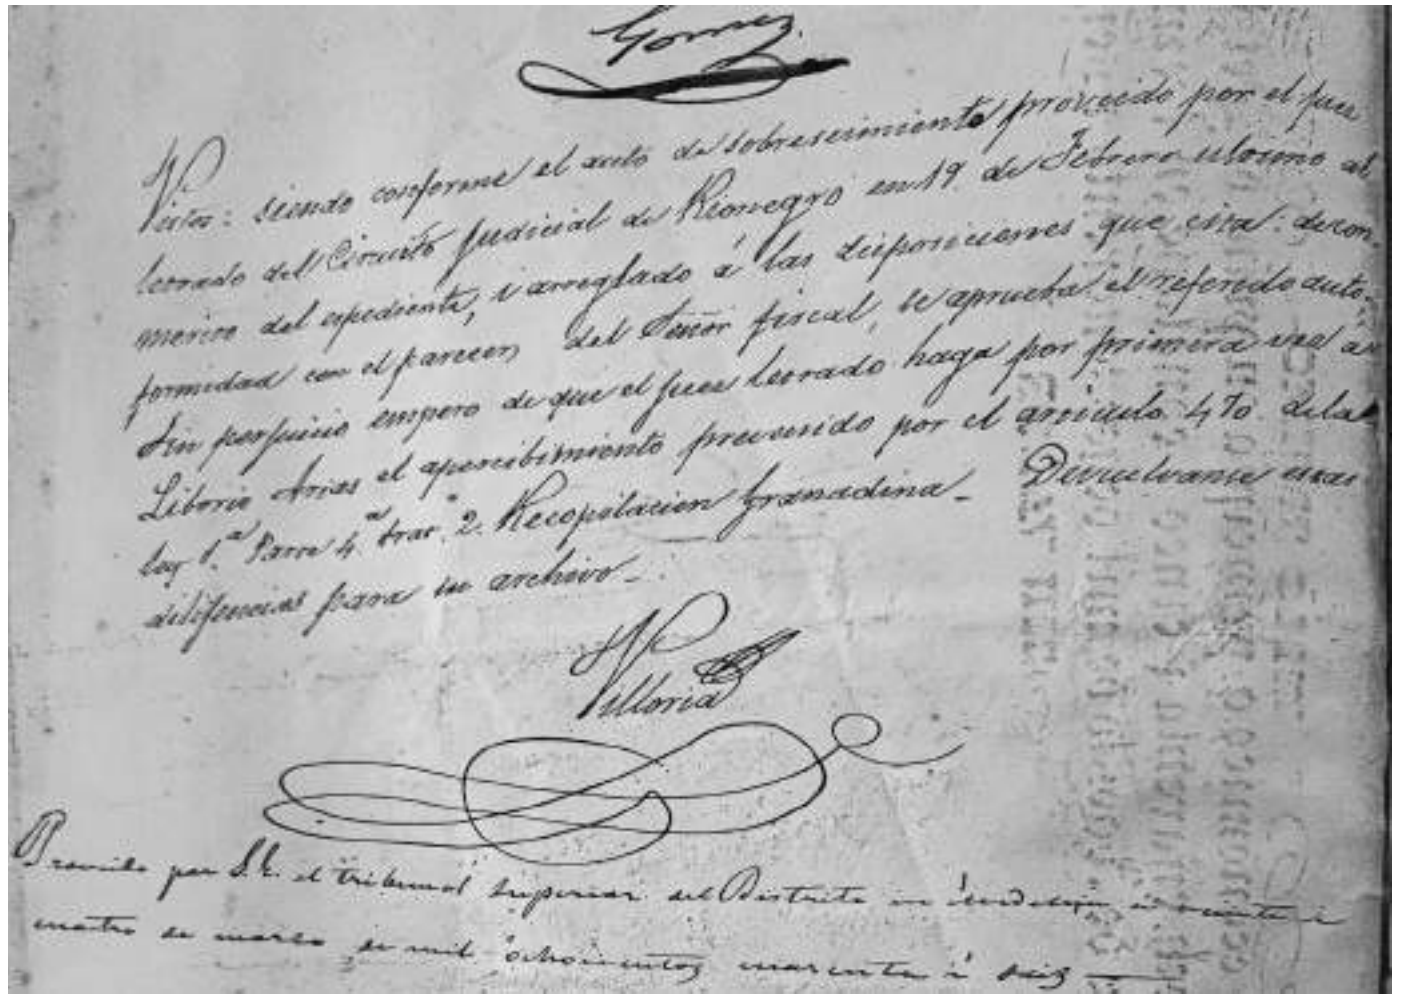 Gomez
Vistos: siendo conforme el auto de sobreseimiento proveido por el juez
letrado del Circuito Judicial de Rionegro en 19. de Febrero ultimo al
merito del espediente, i arreglado á las disposiciones que cita: de con-
formidad con el parecer del Señor fiscal, se aprueba el referido auto.
Sin perjuicio empero de que el juez letrado haga por primera vez a
Liborio Arias el apercibimiento prevenido por el articulo 470. de la
ley 1.ª Parte 4.ª trat.º 2. Recopilacion Granadina_ Devuelvanse estas
dilijencias para su archivo_.
Villoria
Proveido por S.E. el tribunal superior del Distrito en Medellin á veinte i
cuatro de marzo de mil ochocientos cuarenta i seis